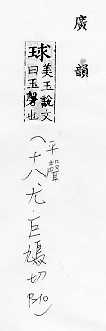 廣韻
球
美玉說文
曰玉磬也
平聲
十八尤・巨鳩切